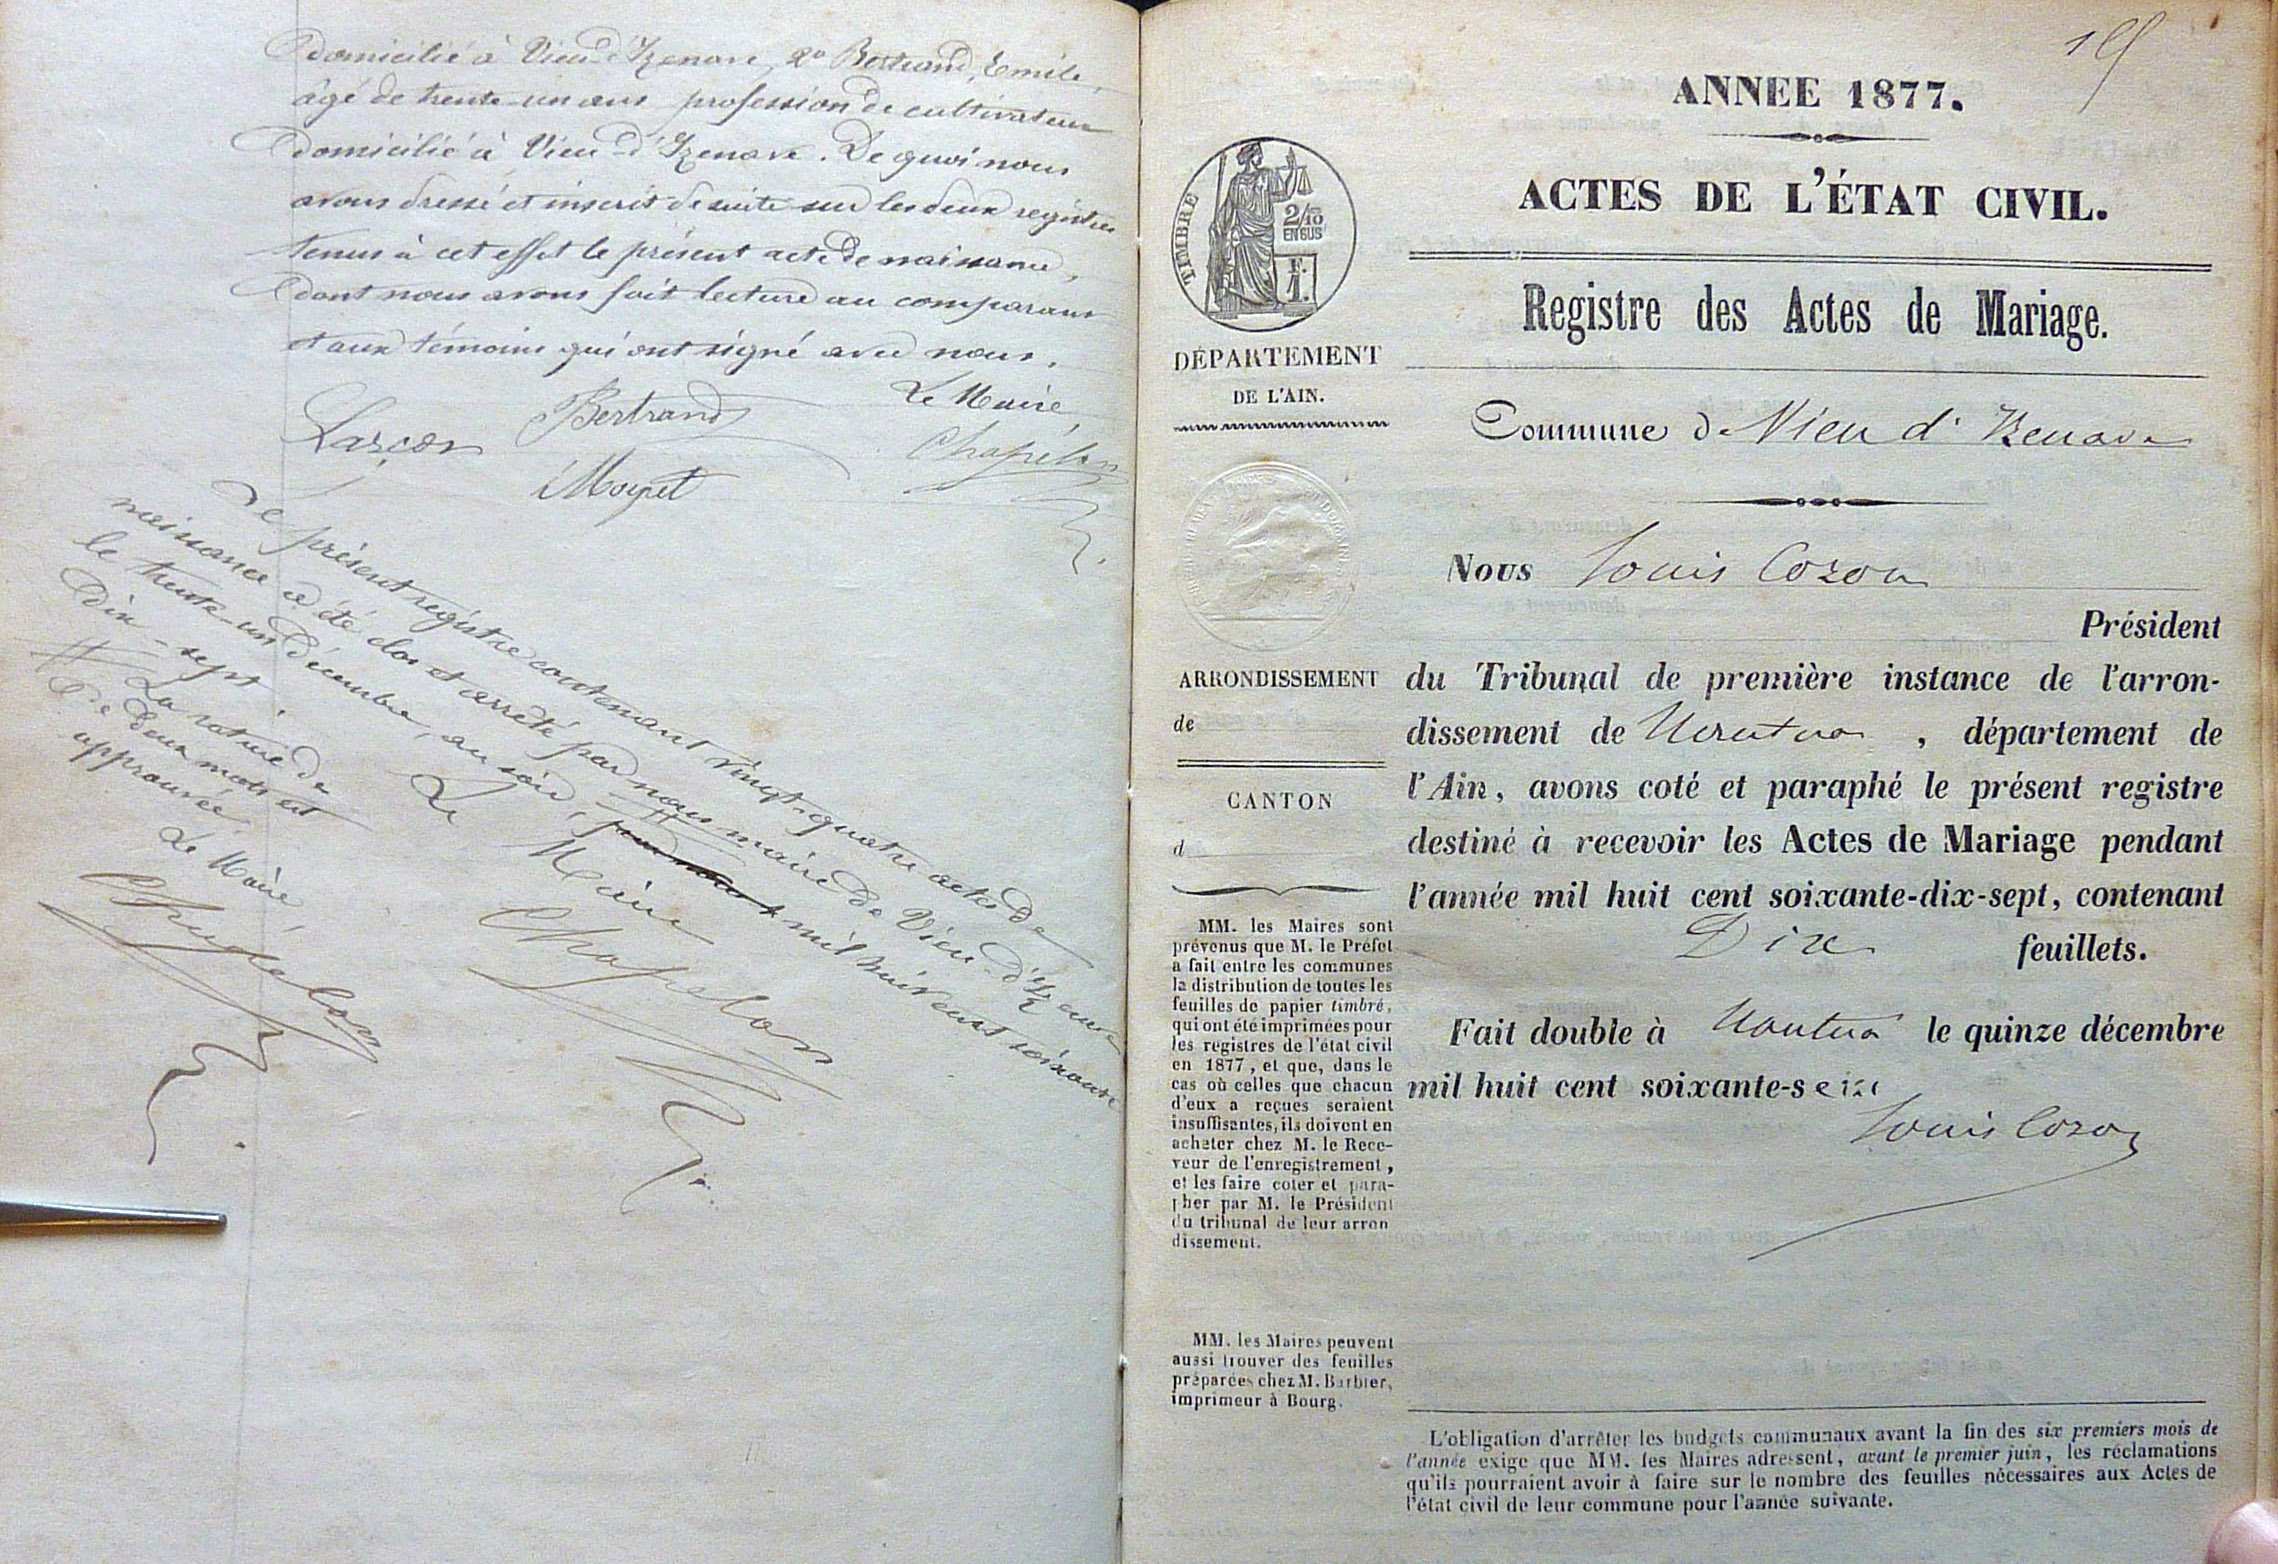 domicilié à Vieu-d'Izenave, 2º Bertrand, Emile,
âgé de trente-un ans profession de cultivateur
domicilié à Vieu-d'Izenave. De quoi nous
avons dressé et inscrit de suite sur les deux registres
tenus à cet effet le présent acte de naissance,
dont nous avons fait lecture au comparant
et aux témoins qui ont signé avec nous.
Le Maire,
Larçon Bertrand Chapelon
Moyret
Le présent registre contenant vingt-quatre actes de
naissance a été clos et arrêté par nous maire de Vieu-d'Izenave
le trente-un décembre, au soir, mil huit cent soixante
dix-sept.
La rature de
de deux mots est
approuvée
Le Maire,
Chapelon
Le Maire
Chapelon
15
ANNEE 1877.
ACTES DE L'ÉTAT CIVIL.
Registre des Actes de Mariage.
TIMBRE
2/10
EN SUS
F.
1.
DÉPARTEMENT
DE L'AIN.
Commune de Vieu d'Izenave
Nous Louis Cozon
Président
du Tribunal de première instance de l'arron-
dissement de Nantua, département de
l'Ain, avons coté et paraphé le présent registre
destiné à recevoir les Actes de Mariage pendant
l'année mil huit cent soixante-dix-sept, contenant
Dix feuillets.
Fait double à Nantua le quinze décembre
mil huit cent soixante-seize
Louis Cozon
ARRONDISSEMENT
de
CANTON
d
MM. les Maires sont
prévenus que M. le Préfet
a fait entre les communes
la distribution de toutes les
feuilles de papier timbré,
qui ont été imprimées pour
les registres de l'état civil
en 1877, et que, dans le
cas où celles que chacun
d'eux a reçues seraient
insuffisantes, ils doivent en
acheter chez M. le Rece-
veur de l'enregistrement,
et les faire coter et para-
pher par M. le Président
du tribunal de leur arron
dissement.
MM. les Maires peuvent
aussi trouver des feuilles
préparées chez M. Barbier,
imprimeur à Bourg.
L'obligation d'arrêter les budgets communaux avant la fin des six premiers mois de
l'année exige que MM. les Maires adressent, avant le premier juin, les réclamations
qu'ils pourraient avoir à faire sur le nombre des feuilles nécessaires aux Actes de
l'état civil de leur commune pour l'année suivante.